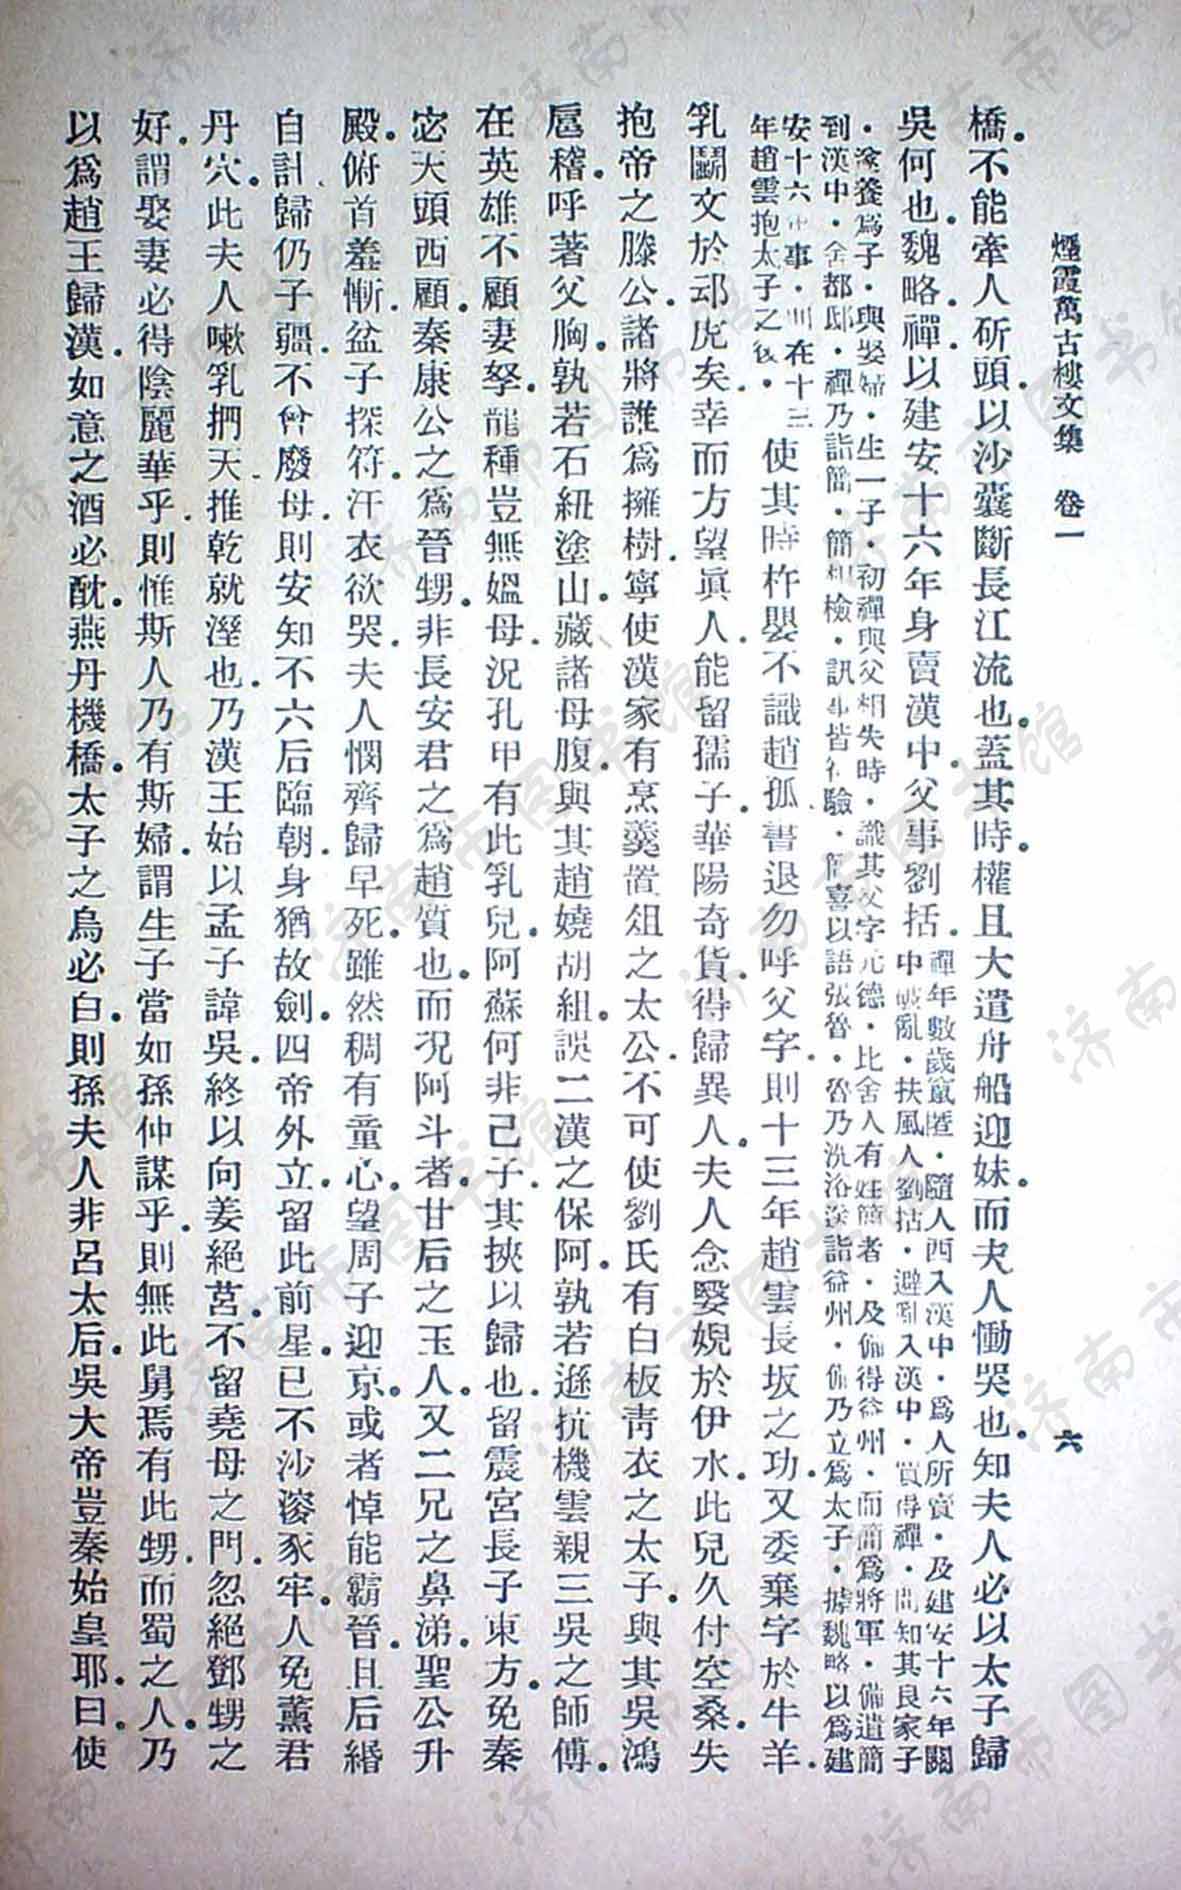 煙霞萬古樓文集　卷一　六
橋。不能牽人斫頭。以沙囊斷長江流也。蓋其時。權且大遣舟船迎妹。而夫人慟哭也。知夫人必以太子歸
吳何也。魏略。禪以建安十六年身賣漢中。父事劉括。禪年數歲竄匿．隨人西入漢中．爲人所賣．及建安十六年關
中破亂．扶風人劉括．避亂入漢中．買得禪．問知其良家子
．遂養爲子．與娶婦．生一子．初禪與父相失時．識其父字元德．比舍人有姓簡者．及備得益州．而簡爲將軍．備遣簡
到漢中．舍都邸．禪乃詣簡．簡相檢．訊事皆符驗．簡喜以語張魯．魯乃洗沐送詣益州．備乃立爲太子．據魏略以爲建
安十六年事．則在十三
年趙雲抱太子之後．使其時杵嬰不識趙孤。書退勿呼父字。則十三年趙雲長坂之功。又委棄字於牛羊。
乳鬬文於邧虎矣。幸而方望眞人。能留孺子。華陽奇貨。得歸異人。夫人念嬰婗於伊水。此兒久付空桑。失
抱帝之滕公。諸將誰爲擁樹。寧使漢家有烹羹置俎之太公。不可使劉氏有白板靑衣之太子。與其吳鴻
扈稽。呼著父胸。孰若石紐塗山。藏諸母腹。與其趙嬈胡組。誤二漢之保阿。孰若遜抗機雲親三吳之師傅。
在英雄不顧妻孥。龍種豈無媼母。況孔甲有此乳兒。阿蘇何非己子。其挾以歸也。留震宮長子東方。免秦
宓天頭西顧。秦康公之爲晉甥。非長安君之爲趙質也。而況阿斗者。甘后之玉人。又二兄之鼻涕。聖公升
殿。俯首羞慚。盆子探符。汗衣欲哭。夫人憫齊歸早死。雖然稠有童心。望周子迎京。或者悼能霸晉。且后緡
自計。歸仍子疆。不曾廢母。則安知不六后臨朝。身猶故劍。四帝外立。留此前星。已不沙溲豕牢。人免薰君
丹穴。此夫人嗽乳捫天。推乾就溼也。乃漢王始以孟子諱吳。終以向姜絕莒。不留堯母之門。忽絕鄧甥之
好。謂娶妻必得陰麗華乎。則惟斯人乃有斯婦。謂生子當如孫仲謀乎。則無此舅焉有此甥。而蜀之人。乃
以爲趙王歸漢。如意之酒必酖。燕丹機橋。太子之烏必白。則孫夫人非呂太后。吳大帝豈秦始皇耶。曰。使